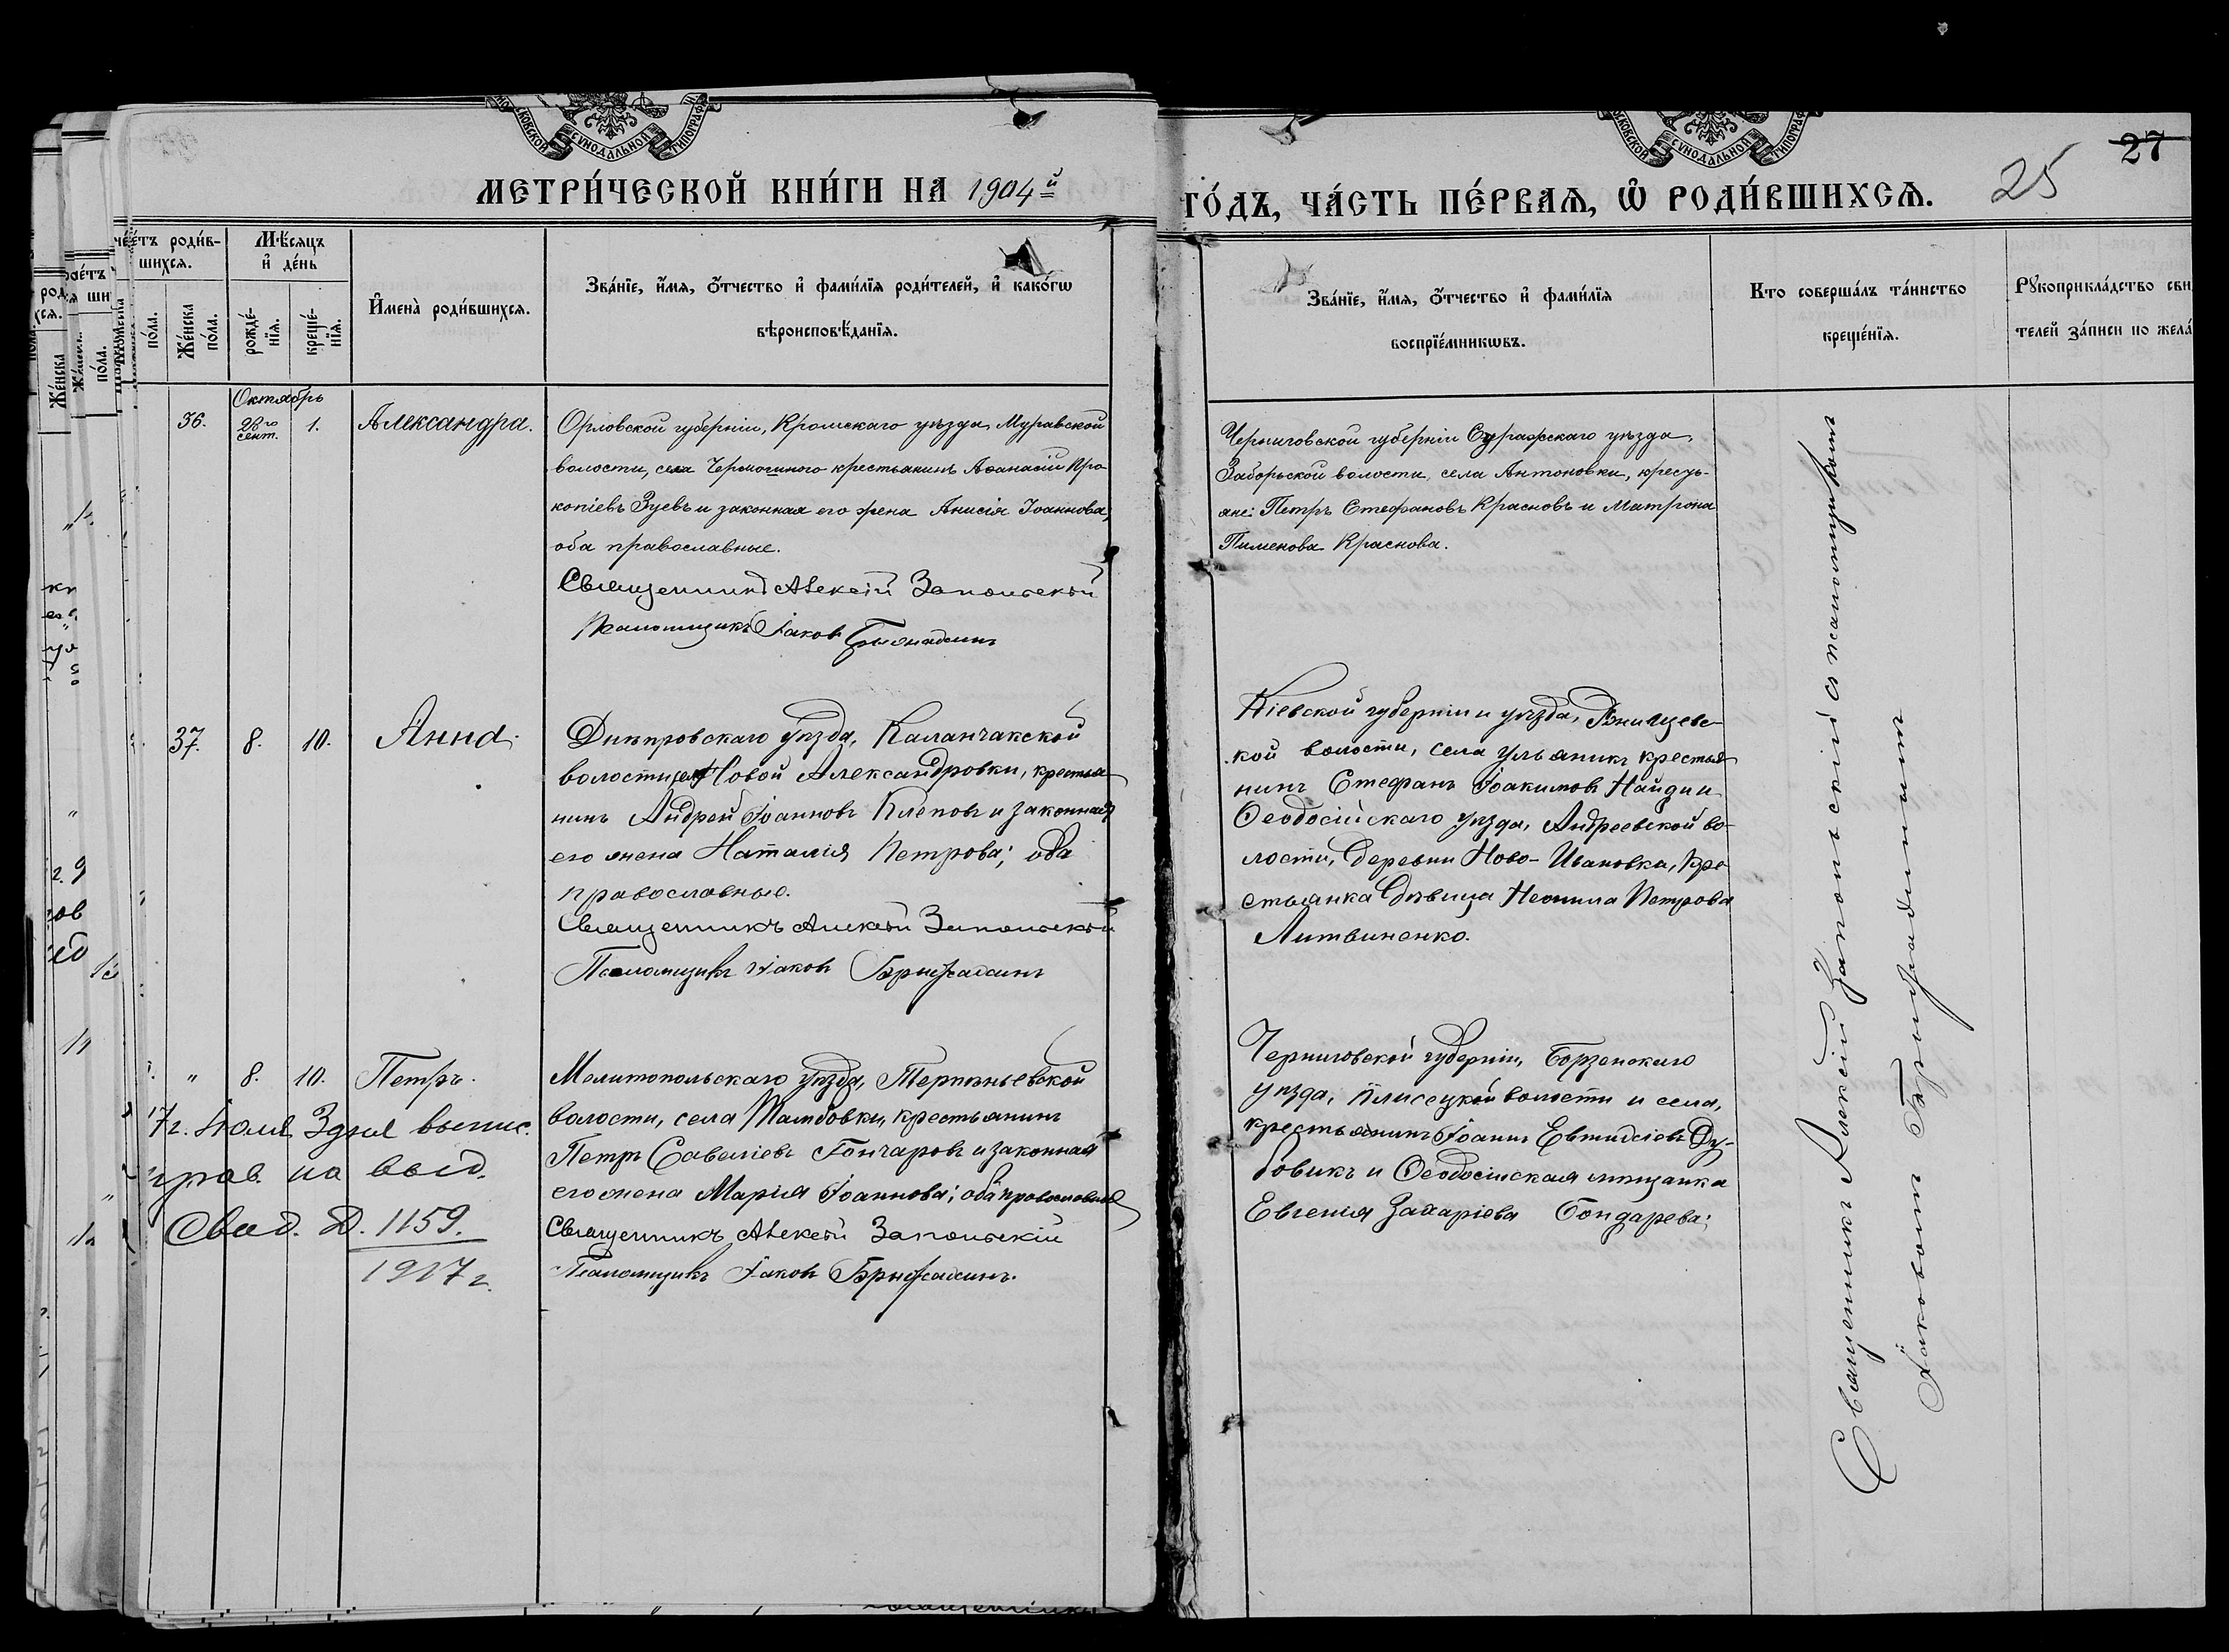 МЕТРИ́ЧЕСКОЙ КНИ́ГИ НА 1904й
ГО́ДЪ, ЧА́СТЬ ПЕ́РВАЯ, Ѡ҆ РОДИ́ВШИХСЯ.
25
27
роди́в-
шихся.
Мѣ́сяцъ
и҆ де́нь
по́ла.
Же́нска
по́ла.
рожде́-
нїя.
креще́-
нїя.
И҆мена̀ роди́вшихся.
Зва́нїе, и҆́мя, ѻ҆́тчество и҆ фами́лїя роди́телей, и҆ како́гѡ
вѣроисповѣ́данїя.
Зва́нїе, и҆́мя, ѻ҆́тчество и҆ фами́лїя
воспрїе́мникѡвъ.
Кто соверша́лъ та́инство
креще́нїя.
Рꙋкоприкла́дство сви
телей за́писи по жела́
Октябрь
36.
28го
сент.
1.
Александра.
Орловской губерніи, Кромскаго уѣзда, Муравской
волости, села крестьянинъ Аѳанасій Про-
копіевъ Зуевъ и законная его жена Анисія Іоаннова,
оба православные.
Священникъ Алексій Запольскій
Псаломщикъ Іаковъ Брынадинъ
Черниговской губерніи Суражскаго уѣзда,
Заборьской волости, села Антоновки, кресть-
яне: Петръ Стефановъ Красновъ и Матрона
Пименова Краснова.
37.
8.
10.
Анна.
Днѣпровскаго уѣзда, Каланчакской
волости, сел. Новой Александровки, крестья-
нинъ Андрей Іоанновъ Клеповъ и законная
его жена Наталія Петрова; оба
православные.
Священникъ Алексій Запольскій
Псаломщикъ Іаковъ
Кіевской губерніи и уѣзда,
кой волости, села Ульяникъ крестья-
нинъ Стефанъ Іоакимовъ Найди и
Ѳеодосійскаго уѣзда, Андреевской во-
лости, деревни Ново-Ивановка, кре-
стьянка дѣвица Неонила Петрова
Литвиненко.
"
8.
10.
Петръ.
Мелитопольскаго уѣзда, Терпѣньевской
волости, села Тамбовки, крестьянинъ
Петръ Савеліевъ Гончаровъ и законная
его жена Марія Іоаннова; оба православные
Священникъ Алексій Запольскій
Псаломщикъ Іаковъ
Черниговской губерніи, Борзенскаго
уѣзда, Плисецкой волости и села,
крестьянинъ Іоаннъ Евтихіевъ Ду-
бовикъ и Ѳеодосійская мѣщанка
Евгенія Захаріева Бондарева;
17г. Іюля 3 дня выпис.
на выд.
Свид. № 1159.
1917 г.
Священникъ Алексій Запольскій съ псаломщикомъ
Іаковомъ